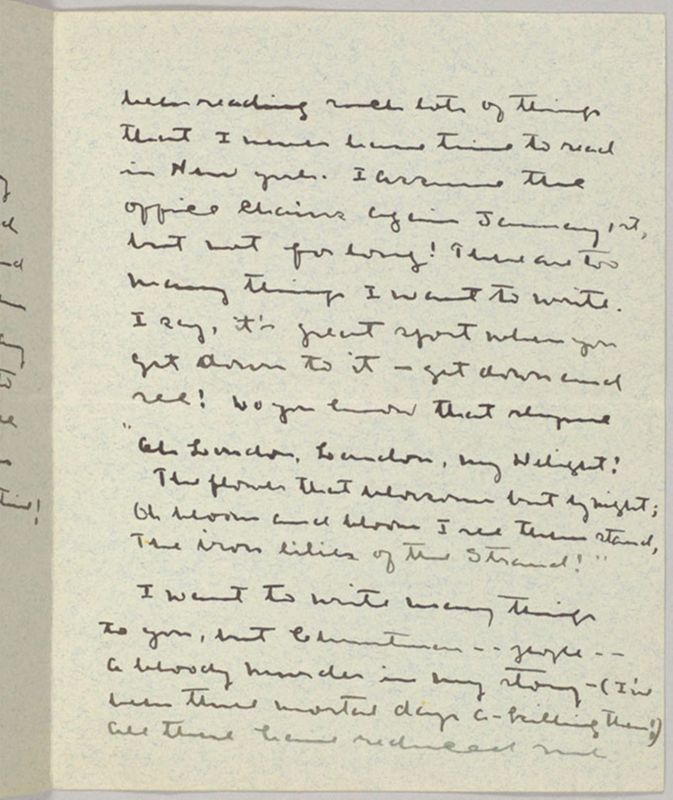 been reading such lots of things
that I never have time to read
in New York. I assume the
office chains again January 1st,
but not for long! There are too
many things I want to write.
I say, it's great sport when you
get down to it – get down and
see! Do you know that rhyme
"Oh London, London, my Delight!
The flower that blossoms but by night;
Oh bloom and bloom I see them stand,
The iron lilies of the Strand!"
I want to write many things
to you, but Christmas -- people --
a bloody murder in my story – (I've
been three mortal days a-killing them!)
all these have reduced me